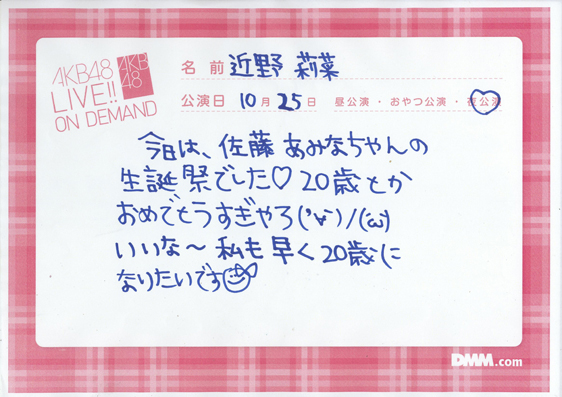 AKB48
LIVE!!
ON DEMAND
AKB
48
名前 近野 莉菜
公演日 10月25日 昼公演・おやつ公演・夜公演
今日は、佐藤あみなちゃんの
生誕祭でした♡20歳とか
おめでとうすぎやろ('∀')/(ω)
いいな〜私も早く20歳に
なりたいです
DMM.com